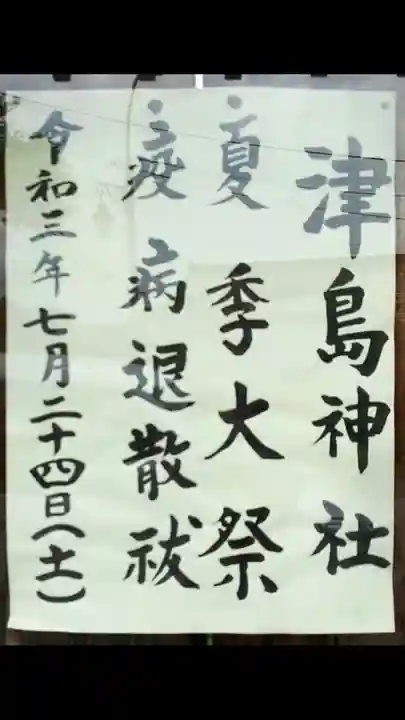 津島神社
夏季大祭
疫病退散祓
令和三年七月二十四日(土)